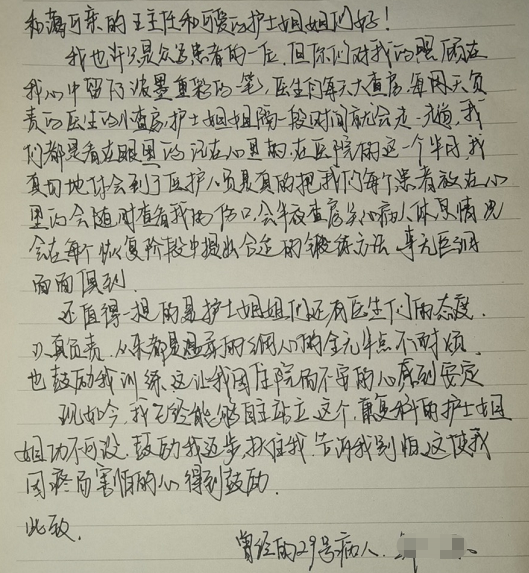 和蔼可亲的王主任和可爱的护士姐姐们好！
我也许只是众多患者的一位，但你们对我的照顾在
我心中留下浓墨重彩的一笔，医生们每天大查房，每两天负
责的医生的小查房，护士姐姐隔一段时间就会走一趟，我
们都是看在眼里的，记在心里的，在医院的这一个半月，我
真切地体会到了医护人员是真的把我们每个患者放在心
里的会随时查看我的伤口，会半夜查房关心病人休息情况
会在每个恢复阶段中提出合适的锻练方法，事无巨细
面面俱到.
还值得一提的是护士姐姐们还有医生们的态度.
认真负责.从来都是温柔的细心的全无半点不耐烦.
也鼓励我训练.这让我因住院而不安的心感到安定
现如今，我已经能够自主站立，这个，康复科的护士姐
姐功不可没，鼓励我迈步，扶住我，告诉我别怕，这使我
因疼而害怕的心得到鼓励.
此致.
曾经的29号病人.